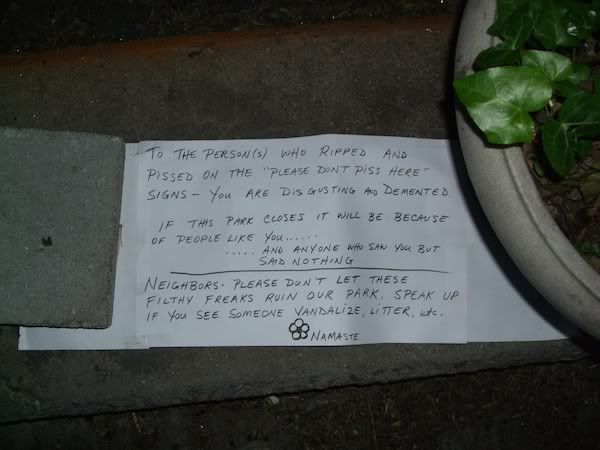 TO THE PERSON(S) WHO RIPPED AND
PISSED ON THE "PLEASE DON'T PISS HERE"
SIGNS — YOU ARE DISGUSTING AND DEMENTED.
IF THIS PARK CLOSES IT WILL BE BECAUSE
OF PEOPLE LIKE YOU......
..... AND ANYONE WHO SAW YOU BUT
SAID NOTHING
NEIGHBORS. PLEASE DON'T LET THESE
FILTHY FREAKS RUIN OUR PARK. SPEAK UP
IF YOU SEE SOMEONE VANDALIZE, LITTER, etc.
NAMASTE